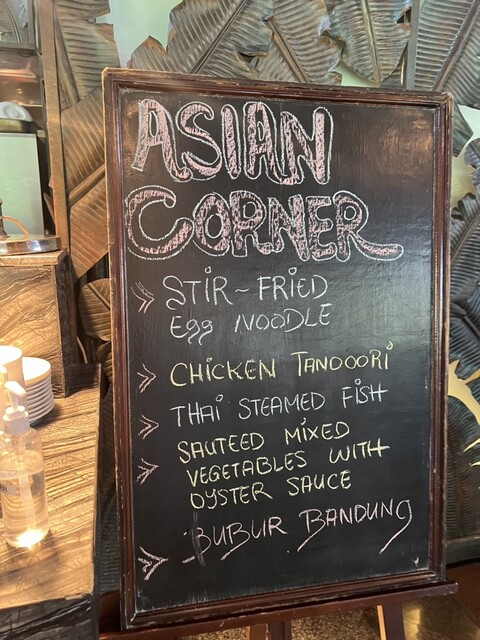 ASIAN
CORNER
STIR-FRIED
Egg NOODLE
CHICKEN TANDOORI
THAI STEAMED FISH
SAUTEED MIXED
VEGETABLES WITH
OYSTER SAUCE
BUBUR BANDUNG